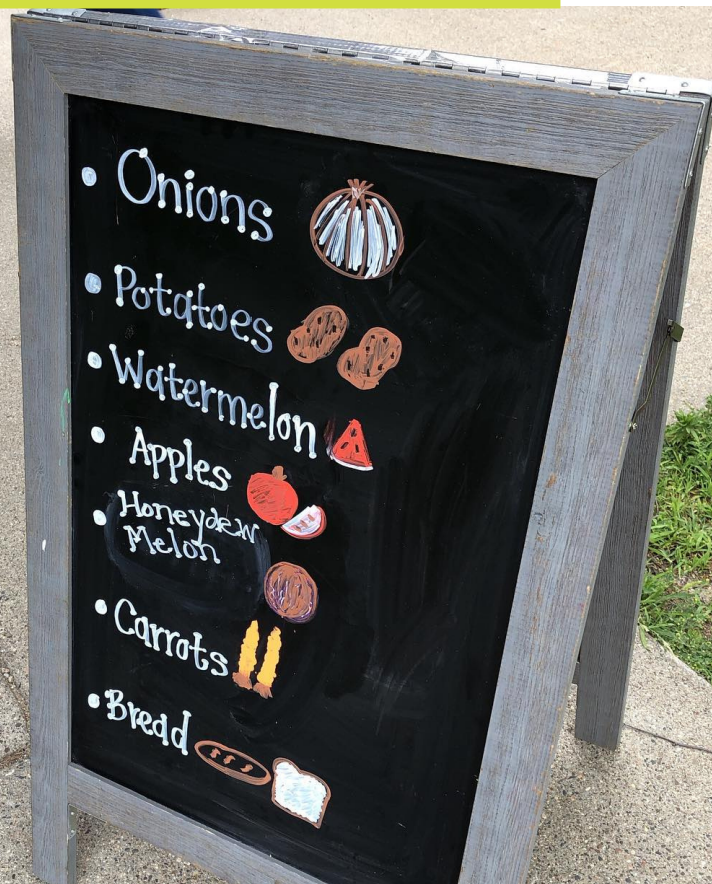 • Onions
• Potatoes
• Watermelon
• Apples
• Honeydew
Melon
• Carrots
• Bread